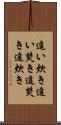 追い炊き追
い焚き追焚
き追炊き